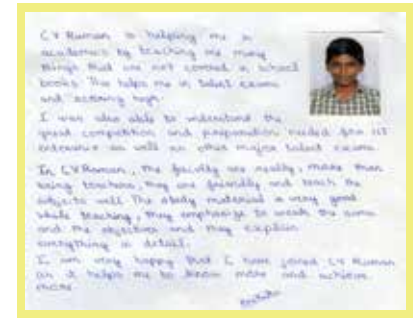 CV Raman is helping me in
academics by teaching me many
things that are not covered in school
books. This helps me in talent exams
and scoring high.
I was also able to understand the
great competition and preparation needed for IIT
entrance as well as other major talent exams.
In CV Raman, the faculty are really, more than
being teachers, they are friendly and teach the
subjects well. The study material is very good
while teaching, they emphasize to reach the aims
and the objectives and they explain
everything in detail.
I am very happy that I have joined CV Raman
as it helps me to know more and achieve
more.